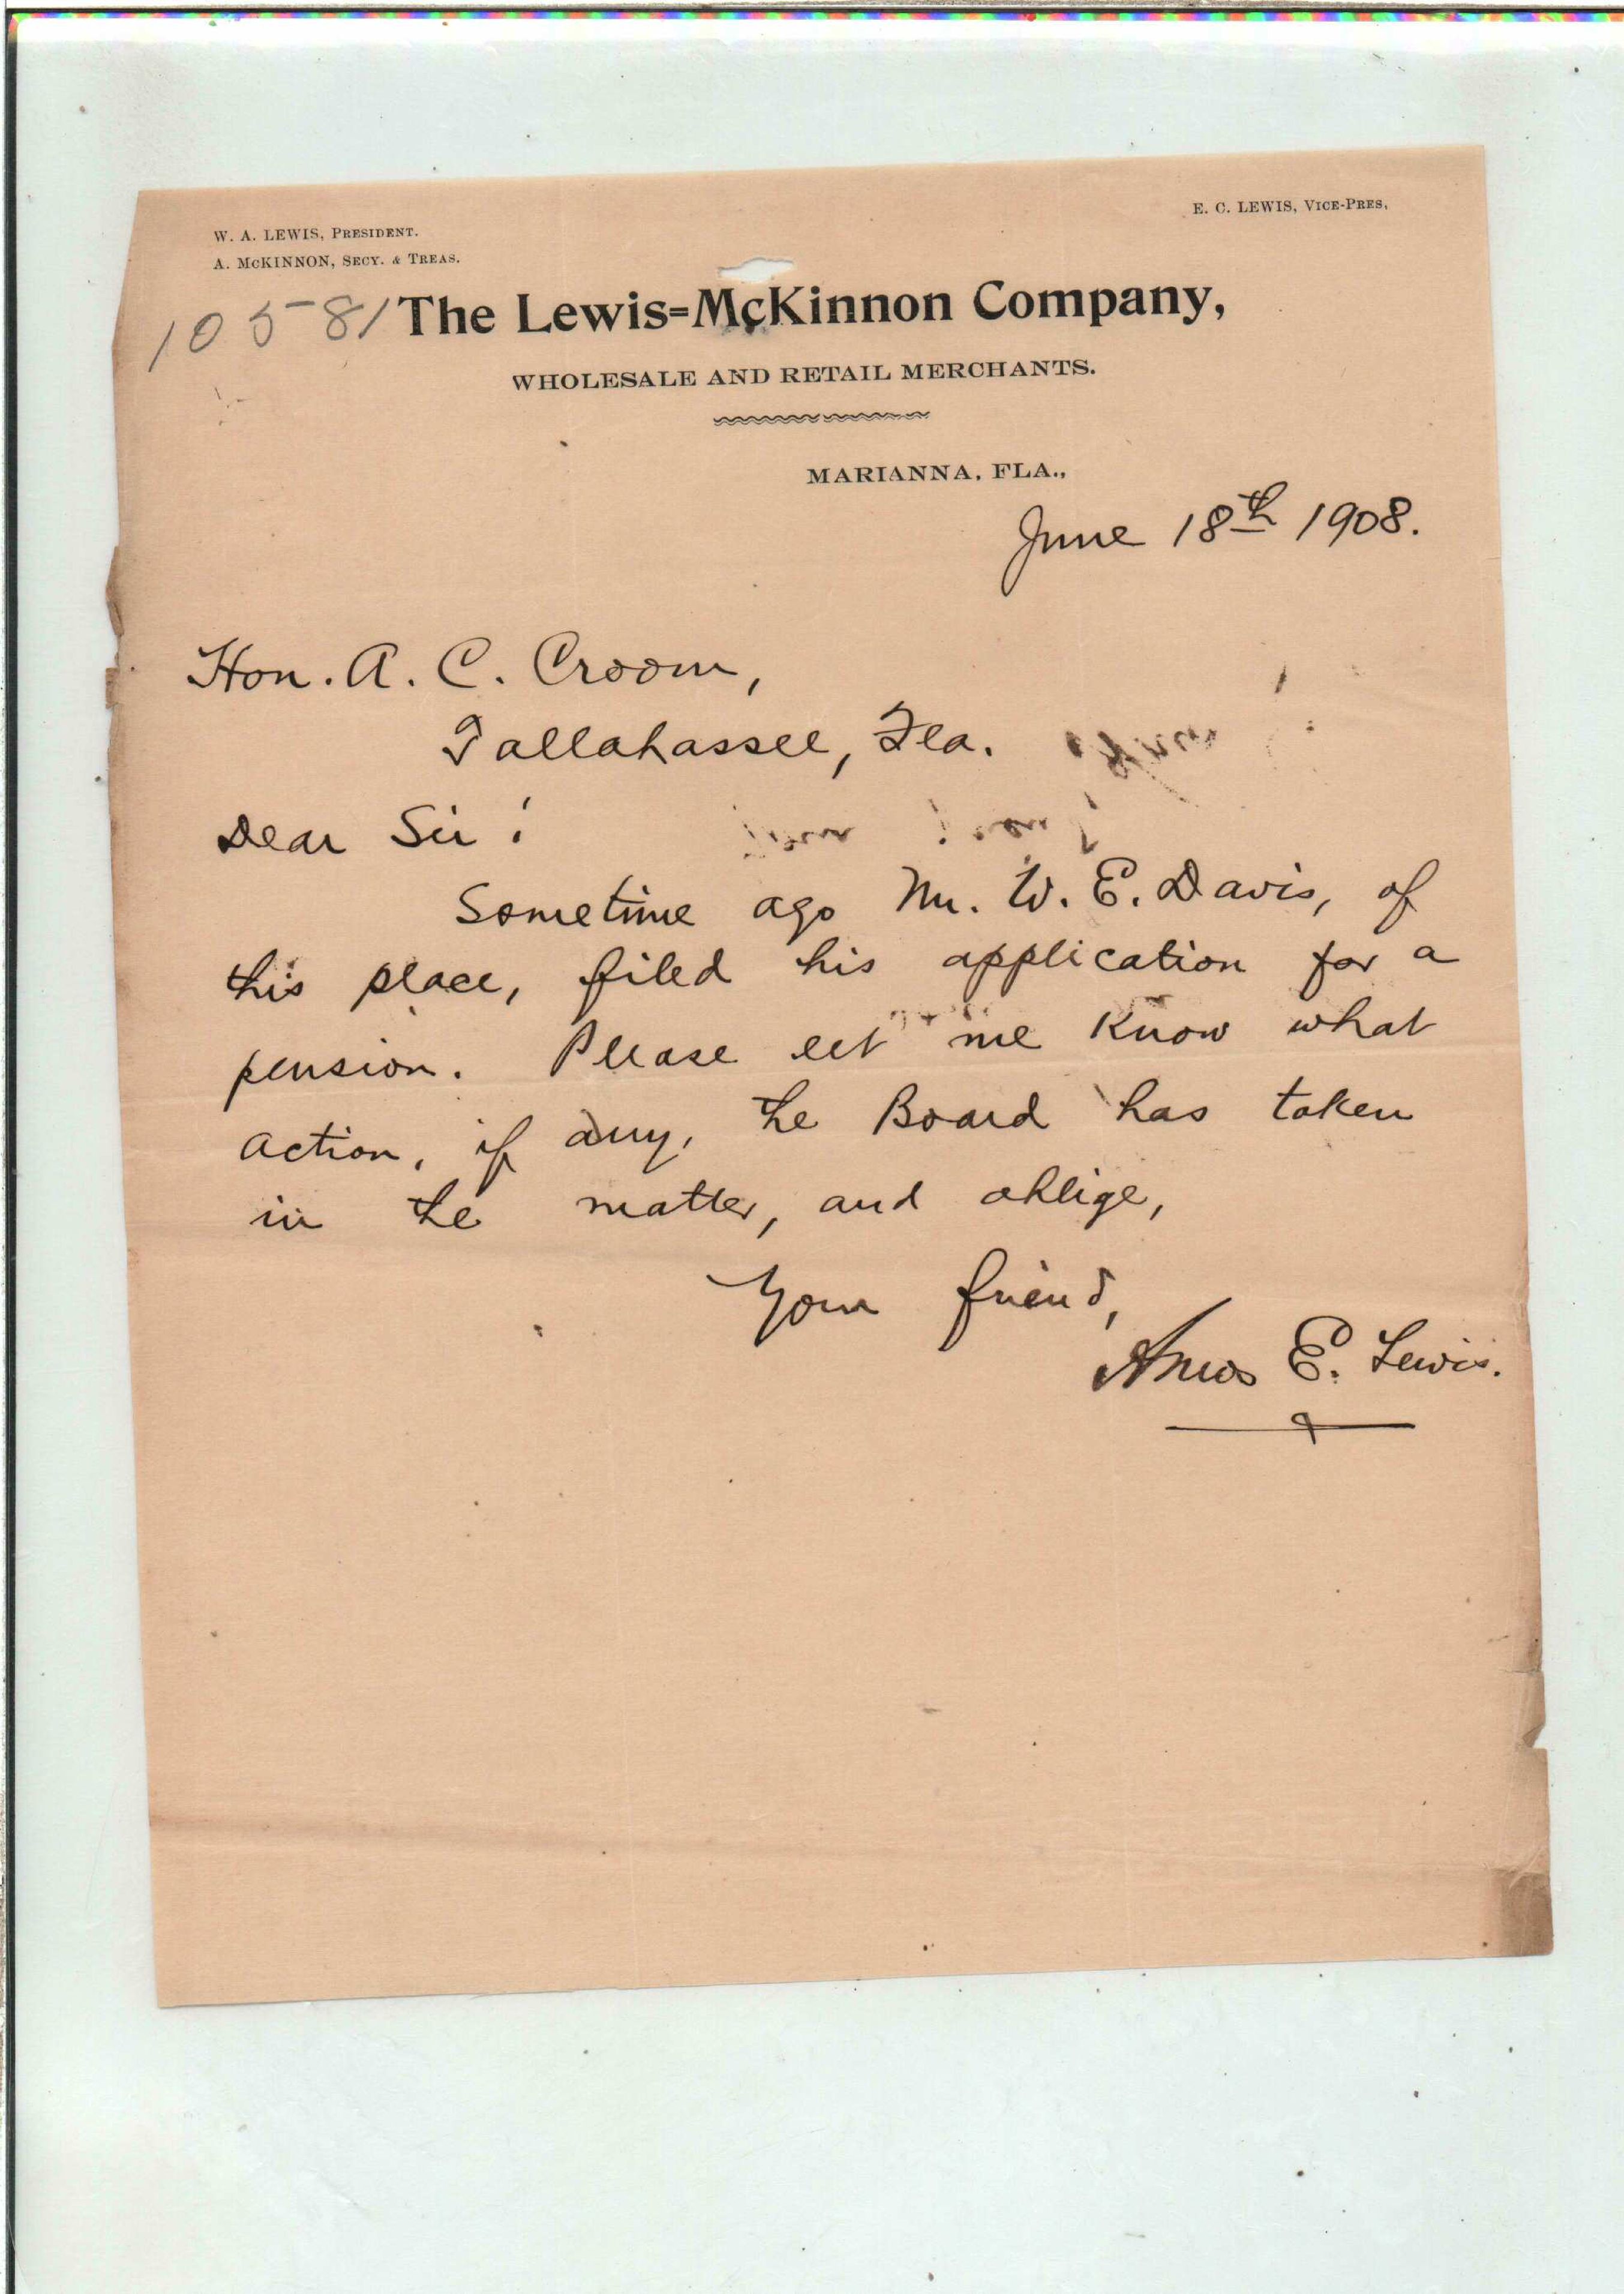 W. A. LEWIS, PRESIDENT.
E. C. LEWIS, VICE-PRES,
A. McKINNON, SECY. & TREAS.
10581
The Lewis=McKinnon Company,
WHOLESALE AND RETAIL MERCHANTS.
MARIANNA, FLA.,
June 18th 1908.
Hon. A. C. Croom,
Tallahassee, Fla.
Dear Sir:
Sometime ago Mr. W. E. Davis, of
this place, filed his application for a
pension. Please let me know what
action, if any, the Board has taken
in the matter, and oblige,
Your friend,
Amos E. Lewis.